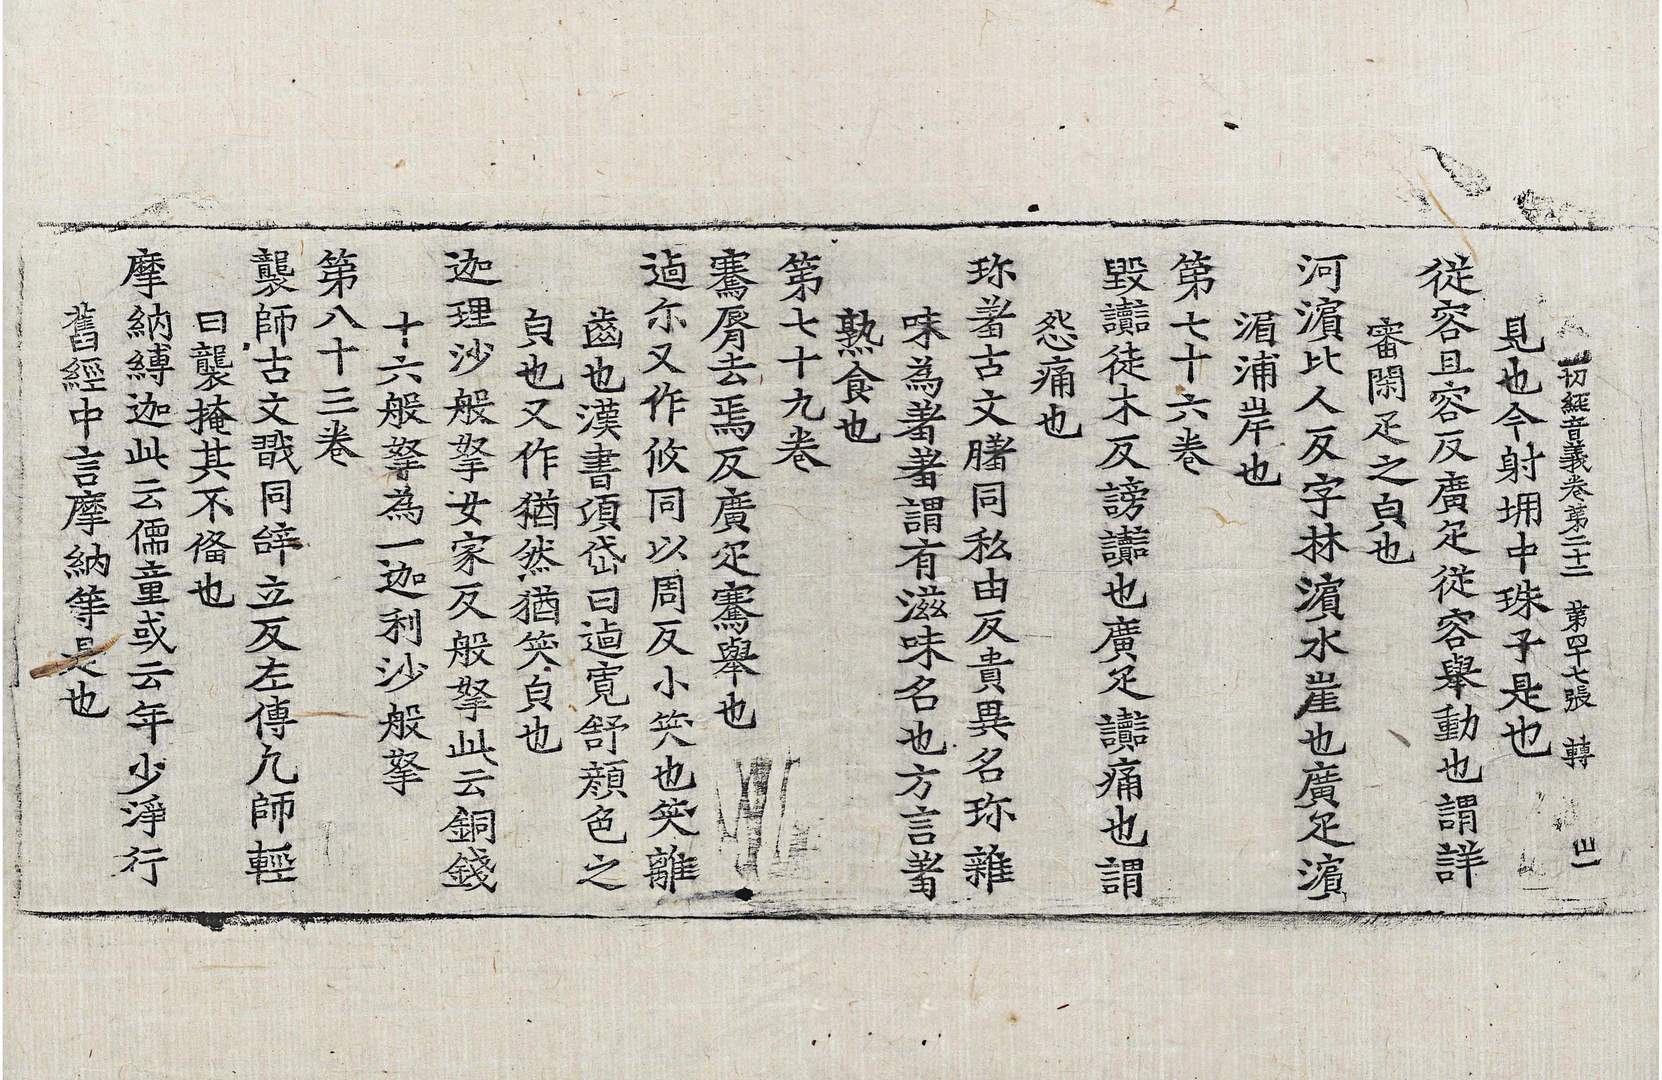 一切經音義卷第二十二 第四十七張 轉
見也今射堋中珠子是也
從容且容反廣疋從容舉動也謂詳
審閑疋之皃也
河濵比人反字林濵水崖也廣疋濵
湄浦岸也
第七十六卷
毀讟徒木反謗讟也廣疋讟痛也謂
怨痛也
珎著古文𦞦同私由反貴異名珎雜
味為著著謂有滋味名也方言著
熟食也
第七十九卷
騫脣去焉反廣疋騫舉也
逌尓又作攸同以周反小笑也笑離
齒也漢書項岱曰逌寬舒顔色之
皃也又作猶然猶笑皃也
迦理沙般拏女家反般拏此云銅錢
十六般拏為一迦利沙般拏
第八十三卷
襲師古文戠同辝立反左傳凢師輕
曰襲掩其不俻也
摩納縛迦此云儒童或云年少淨行
舊經中言摩納等是也